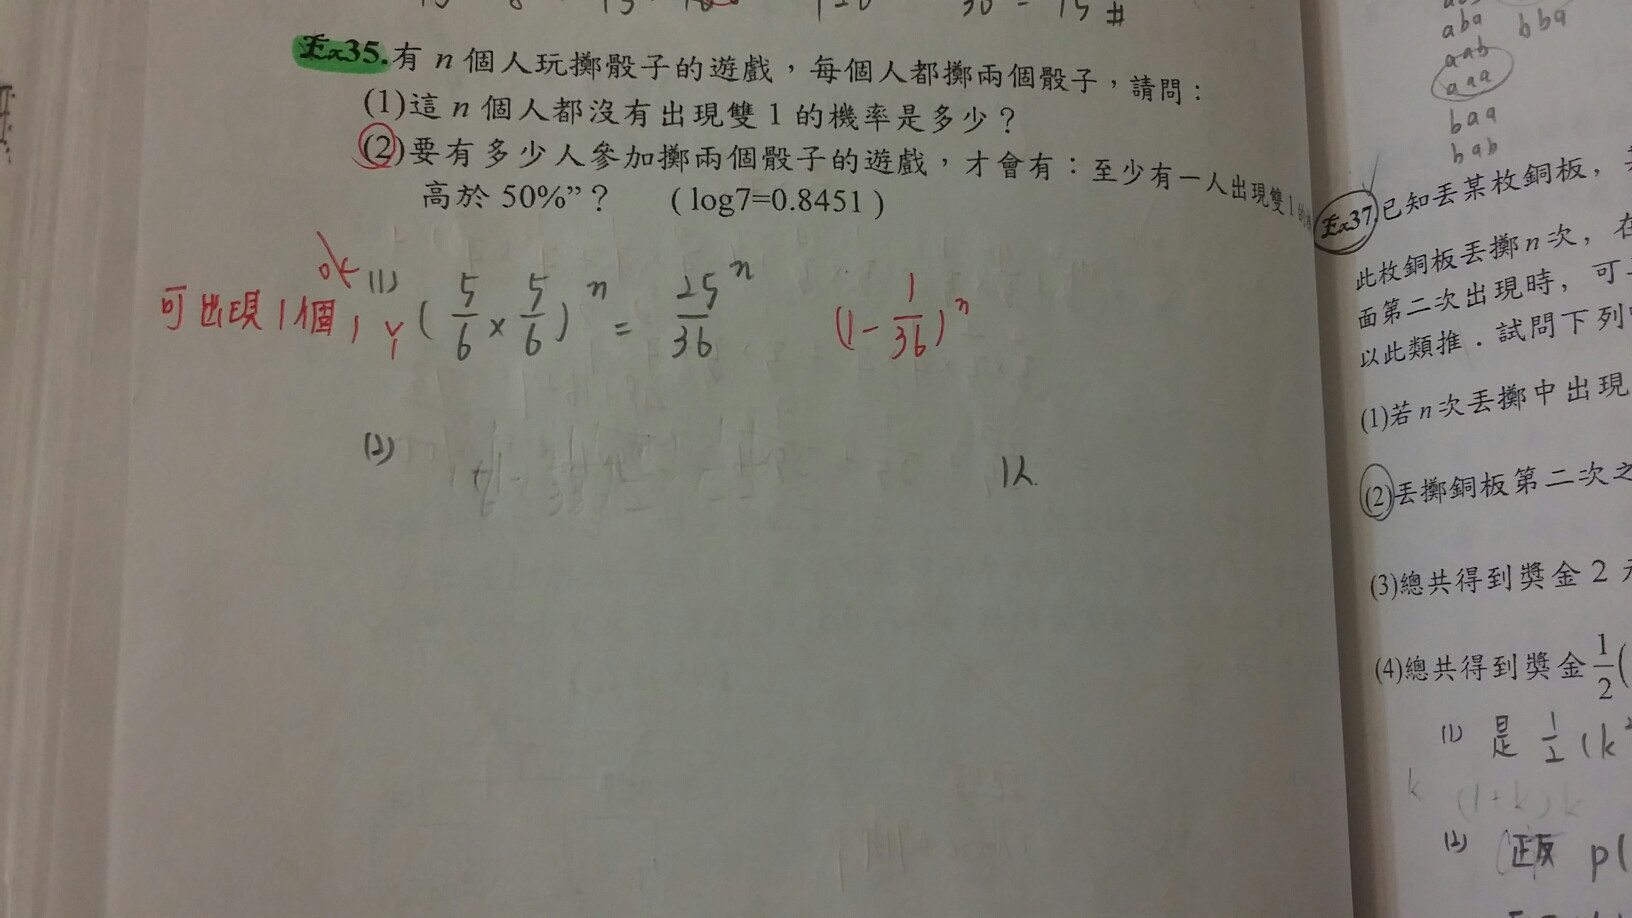 Ex35.有 n 個人玩擲骰子的遊戲，每個人都擲兩個骰子，請問：
(1)這 n 個人都沒有出現雙 1 的機率是多少？
(2)要有多少人參加擲兩個骰子的遊戲，才會有：至少有一人出現雙 1 的
高於 50%”？ (log7=0.8451)
ok (1) (5/6 × 5/6)^n = 25/36^n (1-1/36)^n
可出現1個1
(2) 1人
aba bba
aab
aaa
baa
bab
Ex37.已知丟某枚銅板，
此枚銅板丟擲n次，在
面第二次出現時，可
以此類推．試問下列
(1)若n次丟擲中出現
(2)丟擲銅板第二次之
(3)總共得到獎金 2
(4)總共得到獎金 1/2(
(1) 是 1/2 (k
k (1+k)k
(2) 正反 p(